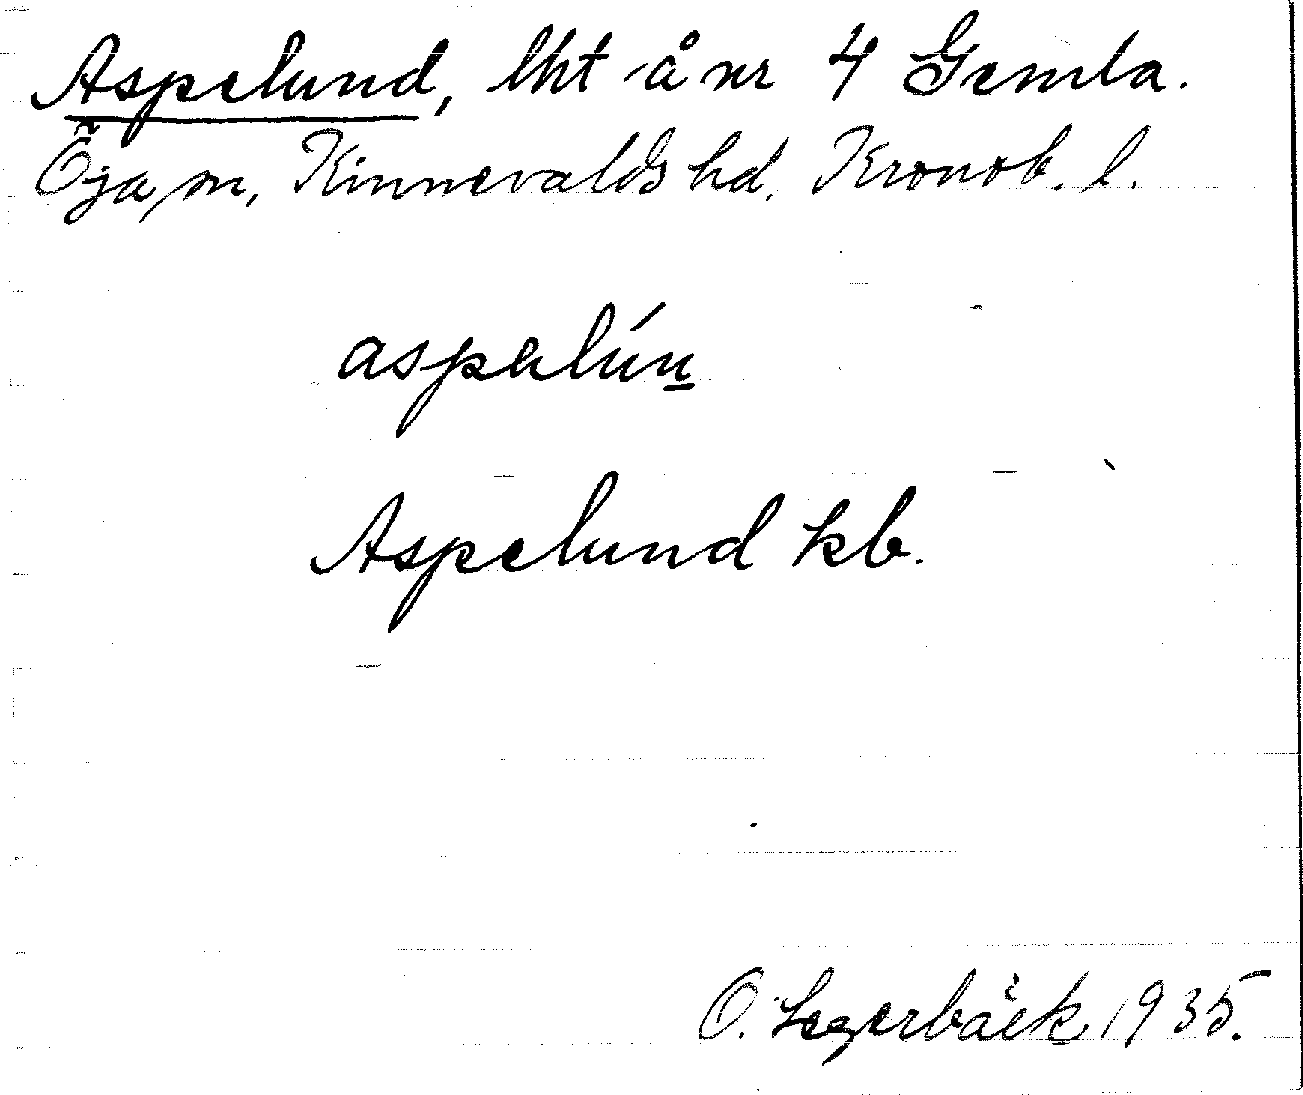 Aspelund, lht å nr 4 Gemla.
Öja sn, Kinnevalds hd. Kronob. l.
aspalún
Aspelund kb.
O. Segerbäck 1935.